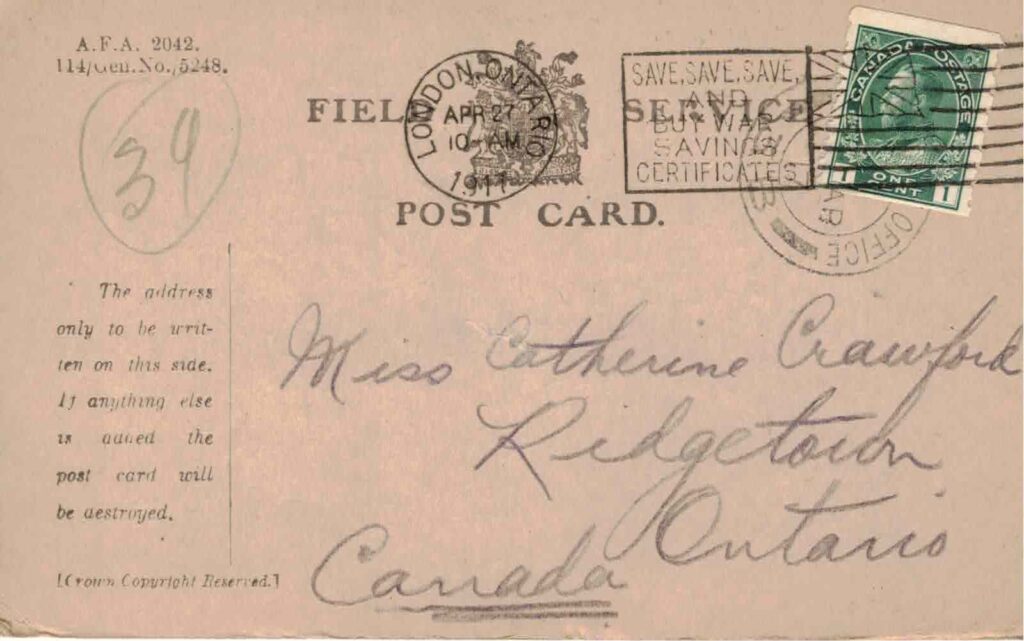 A.F.A. 2042.
114/Gen.No./5248.
39
FIELD SERVICE
POST CARD.
LONDON, ONTARIO
APR 27
10-AM
1917
SAVE, SAVE, SAVE,
AND
BUY WAR
SAVINGS
CERTIFICATES
CANADA POSTAGE
ONE
CENT
1 1
OFFICE
The address
only to be writ-
ten on this side.
If anything else
is added the
post card will
be destroyed.
[Crown Copyright Reserved.]
Miss Catherine Crawford
Ridgetown
Ontario
Canada